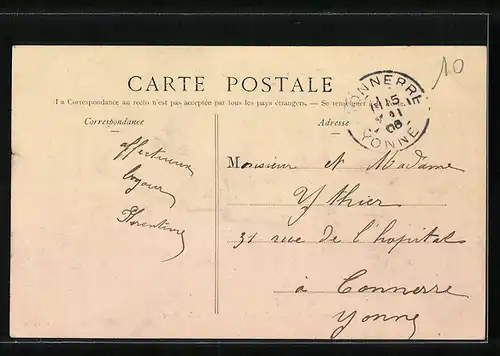 10
CARTE POSTALE
La Correspondance au recto n'est pas acceptée par tous les pays étrangers. — Se renseigner à la Poste.
Correspondance
Adresse
TONNERRE
15
08
YONNE
Monsieur et Madame
Ythier
31 rue de l'hopital
à Tonnerre
Yonne
affectueux
Florentine